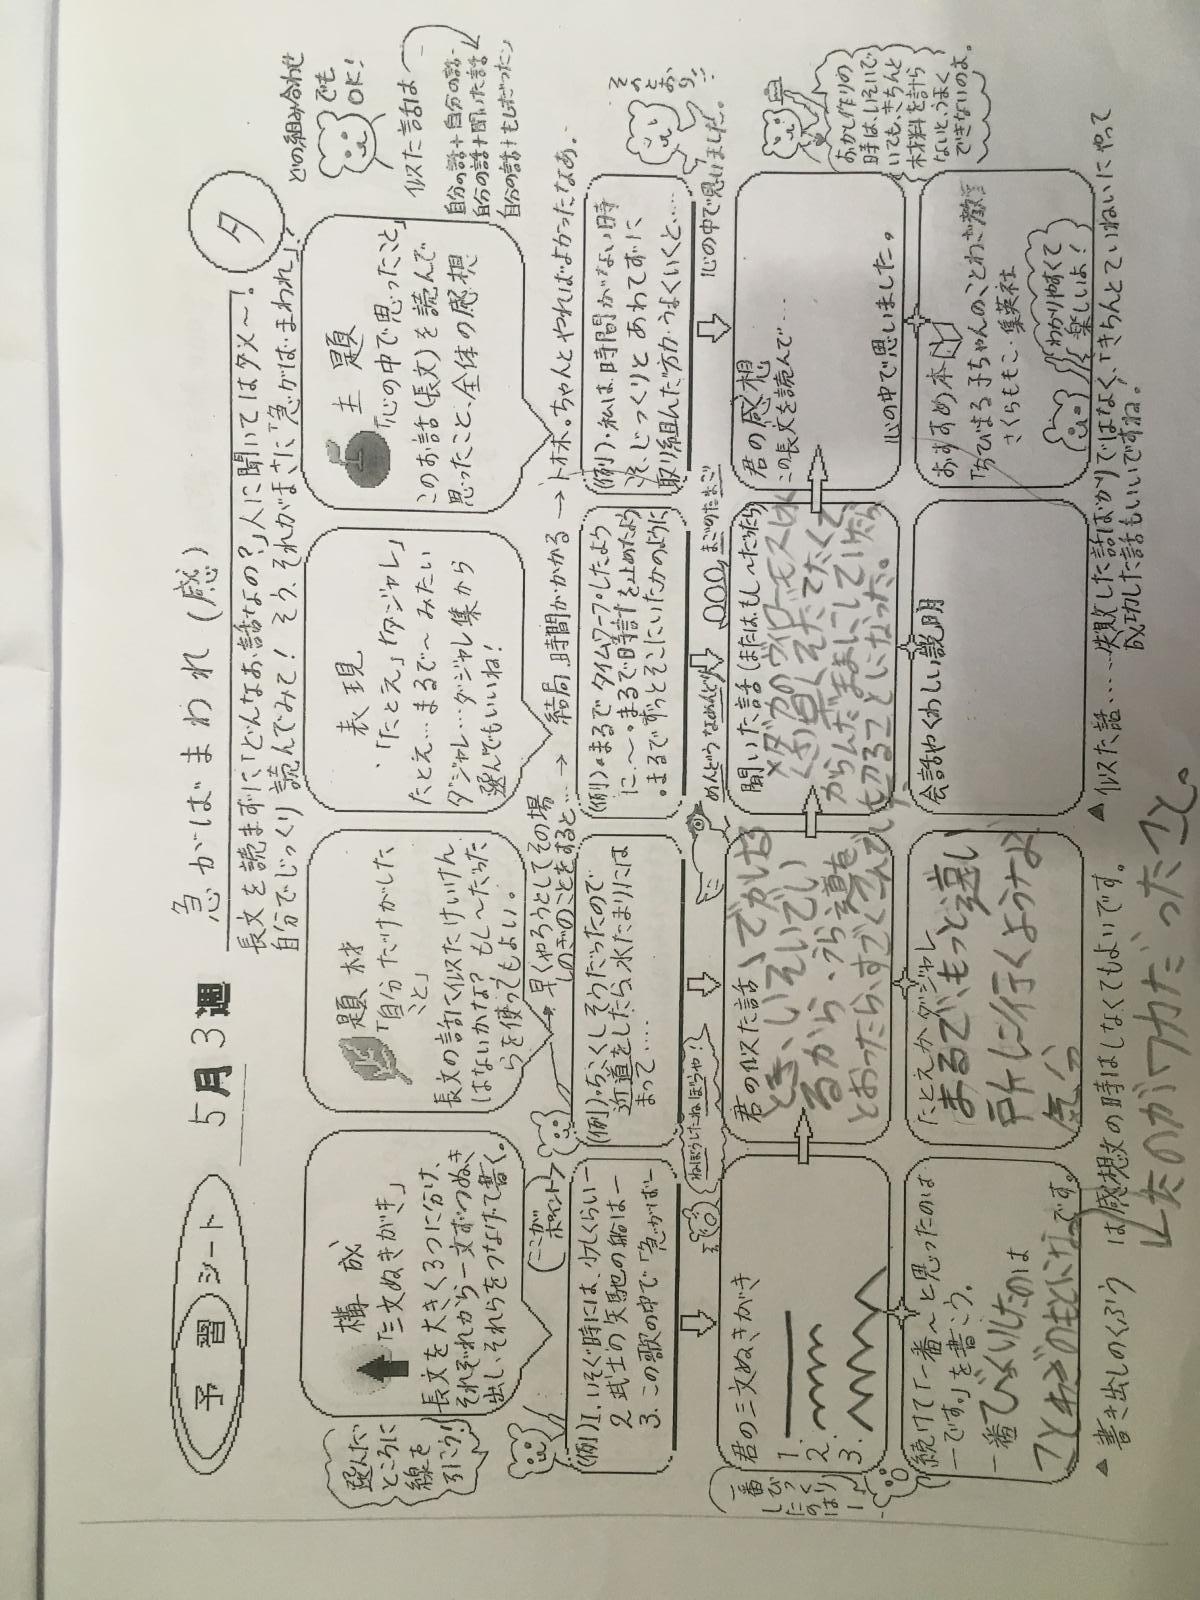 予習シート
5月3週
急がばまわれ(感)
夕
長文を読まずに、「どんなお話なの?」人に聞いてはダメ〜!
自分でじっくり読んでみて! そう、それがまさに「急がば・まわれ」?
どの組み合わせ
でも
OK!
似た話は
自分の話+自分の話
自分の話+聞いた話
自分の話+もしだったら
選んだ
ところに
線を
引こう!
構成
「三文ぬきがき」
長文を大きく3つに分け、
それぞれから一文ずつぬき
出し、それらをつなげて書く。
題材
「自分だけがした
こと」
長文の話に似たけいけん
はないかな? もし〜だった
らを使ってもよい。
表現
「たとえ」「ダジャレ」
たとえ…まるで〜みたい
ダジャレ…ダジャレ集から
選んでもいいね!
主題
「心の中で思ったこと」
このお話(長文)を読んで
思ったこと、全体の感想
ここが
ポイント
早くやろうとしてその場
しのぎのことをすると…
→ 結局時間がかかる →
ちゃんとやればよかったなぁ。
(例)1.いそぐ時には、少しくらいー
2 武士の矢馳の船はー
3.この歌の中で「急がばー
(例)・ちこくしそうだったので
近道をしたら、水たまりには
まって……
(例)・まるでタイムワープしたよう
に〜。・まるで時計を止めたよう
・まるでずっとそこにいたかのように
(例)・私は、時間がない時
こそ、じっくりとあわてずに
取り組んだ方が、うまくいくと……
心の中で思いました。
そのとおり!!
ねぼうしたねぼうや?!
めんどうなめんどり
まごのたまご
一番
びっくり
したのは
ー♪
君の三文ぬきがき
1
2.
3.
君の似た話
でかける
とき、いそいでい
るから、うら道を
とおったら、すごくこんでい
た
聞いた話(または、もし〜だったら)
メダカのヴィーモスは
くわ皿
からんだままにして
切ることになった。
君の感想
この長文を読んで……
心の中で思いました。
おかし作りの
時は、いそいで
いても、きちんと
材料を計ら
ないと、うまく
できないのよ。
続けて「一番〜と思ったのは
ーです。」を書こう。
一番びっくりしたのは
ことわざの
です。
たとえかダジャレ
まるで、もっと遠い
所に行くような
気分
会話やくわしい説明
おすすめ本
「ちびまる子ちゃんのことわざ教室
さくらももこ・集英社
わかりやすくて
楽しいよ!
▲書き出しのくふう は感想文の時はしなくてもよいです。
▲似た話……失敗した話ばかりではなく、「きちんとていねいにやって
成功した話もいいですね。
たのがワカだったこと。